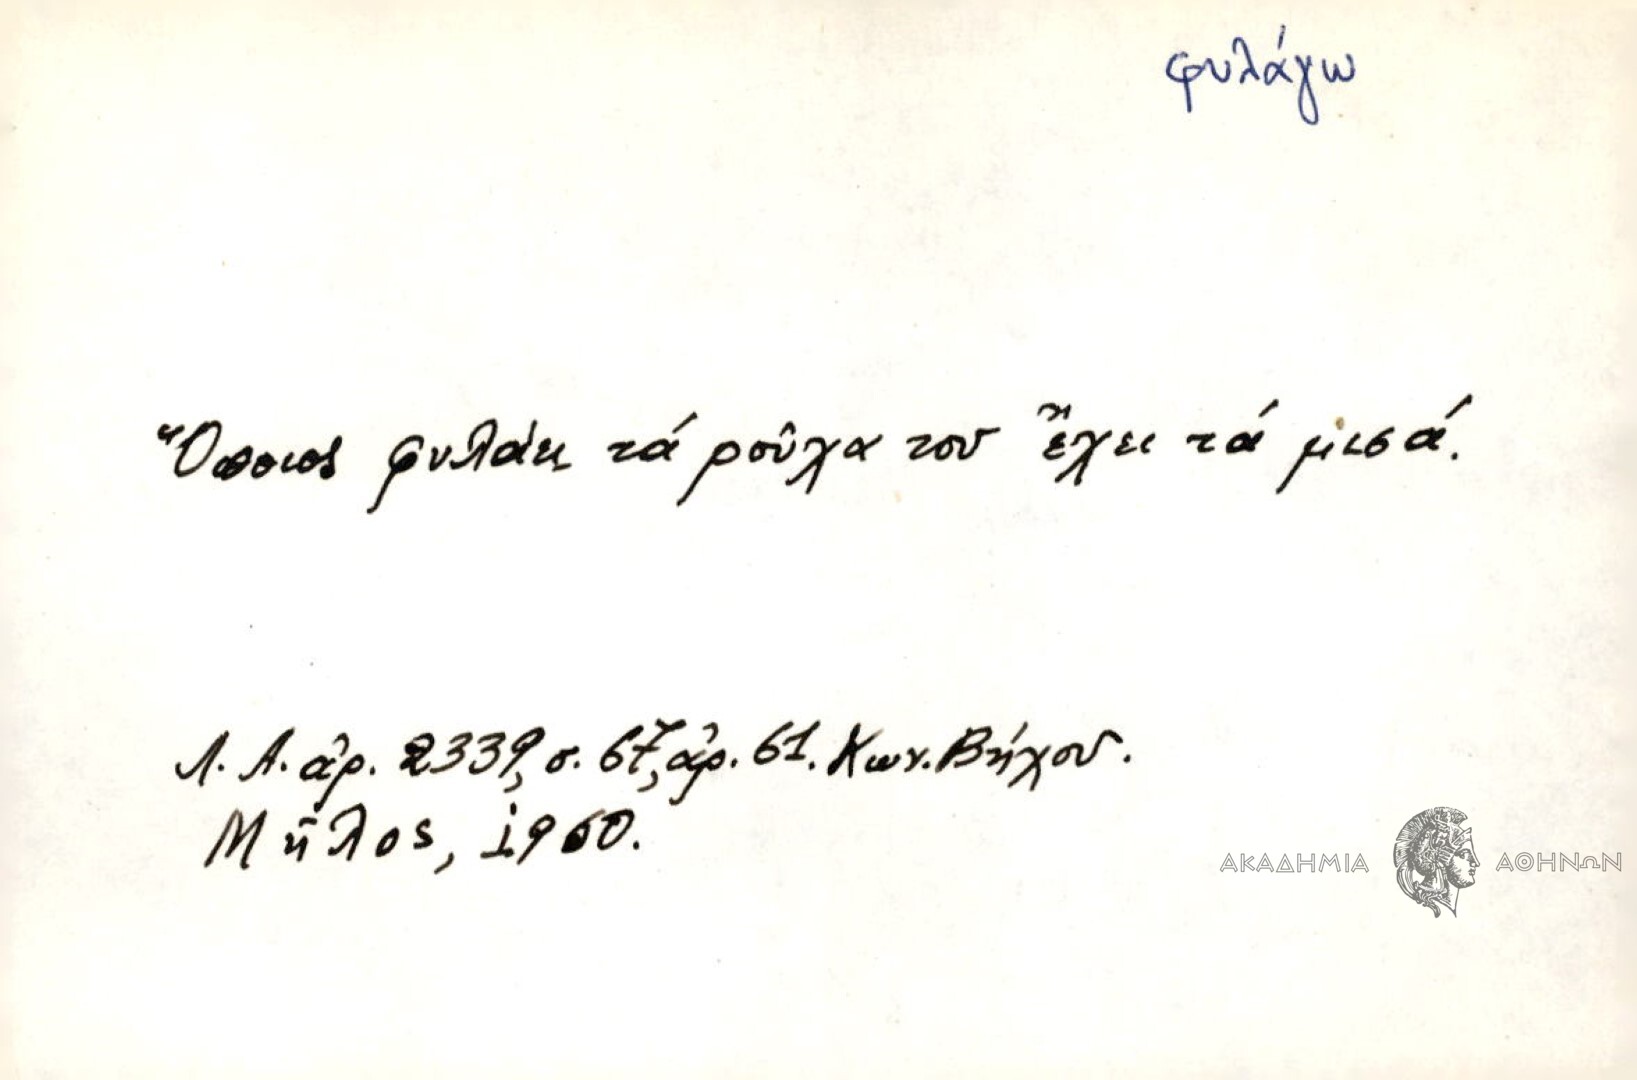 φυλάγω
Ὅποιος φυλάει τά ροῦχα του ἔχει τά μισά.
Λ. Α. ἀρ. 2339, σ. 67, ἀρ. 61. Κων. Βήχου.
Μῆλος, 1960.
ΑΚΑΔΗΜΙΑ ΑΘΗΝΩΝ